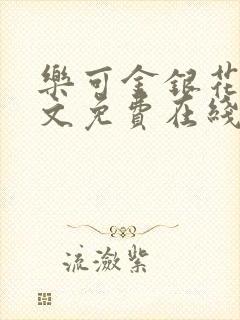 樂可金銀花
文免費在綫
流澂紫